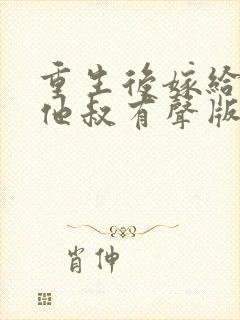 重生後嫁給
他叔有聲版
肖伸